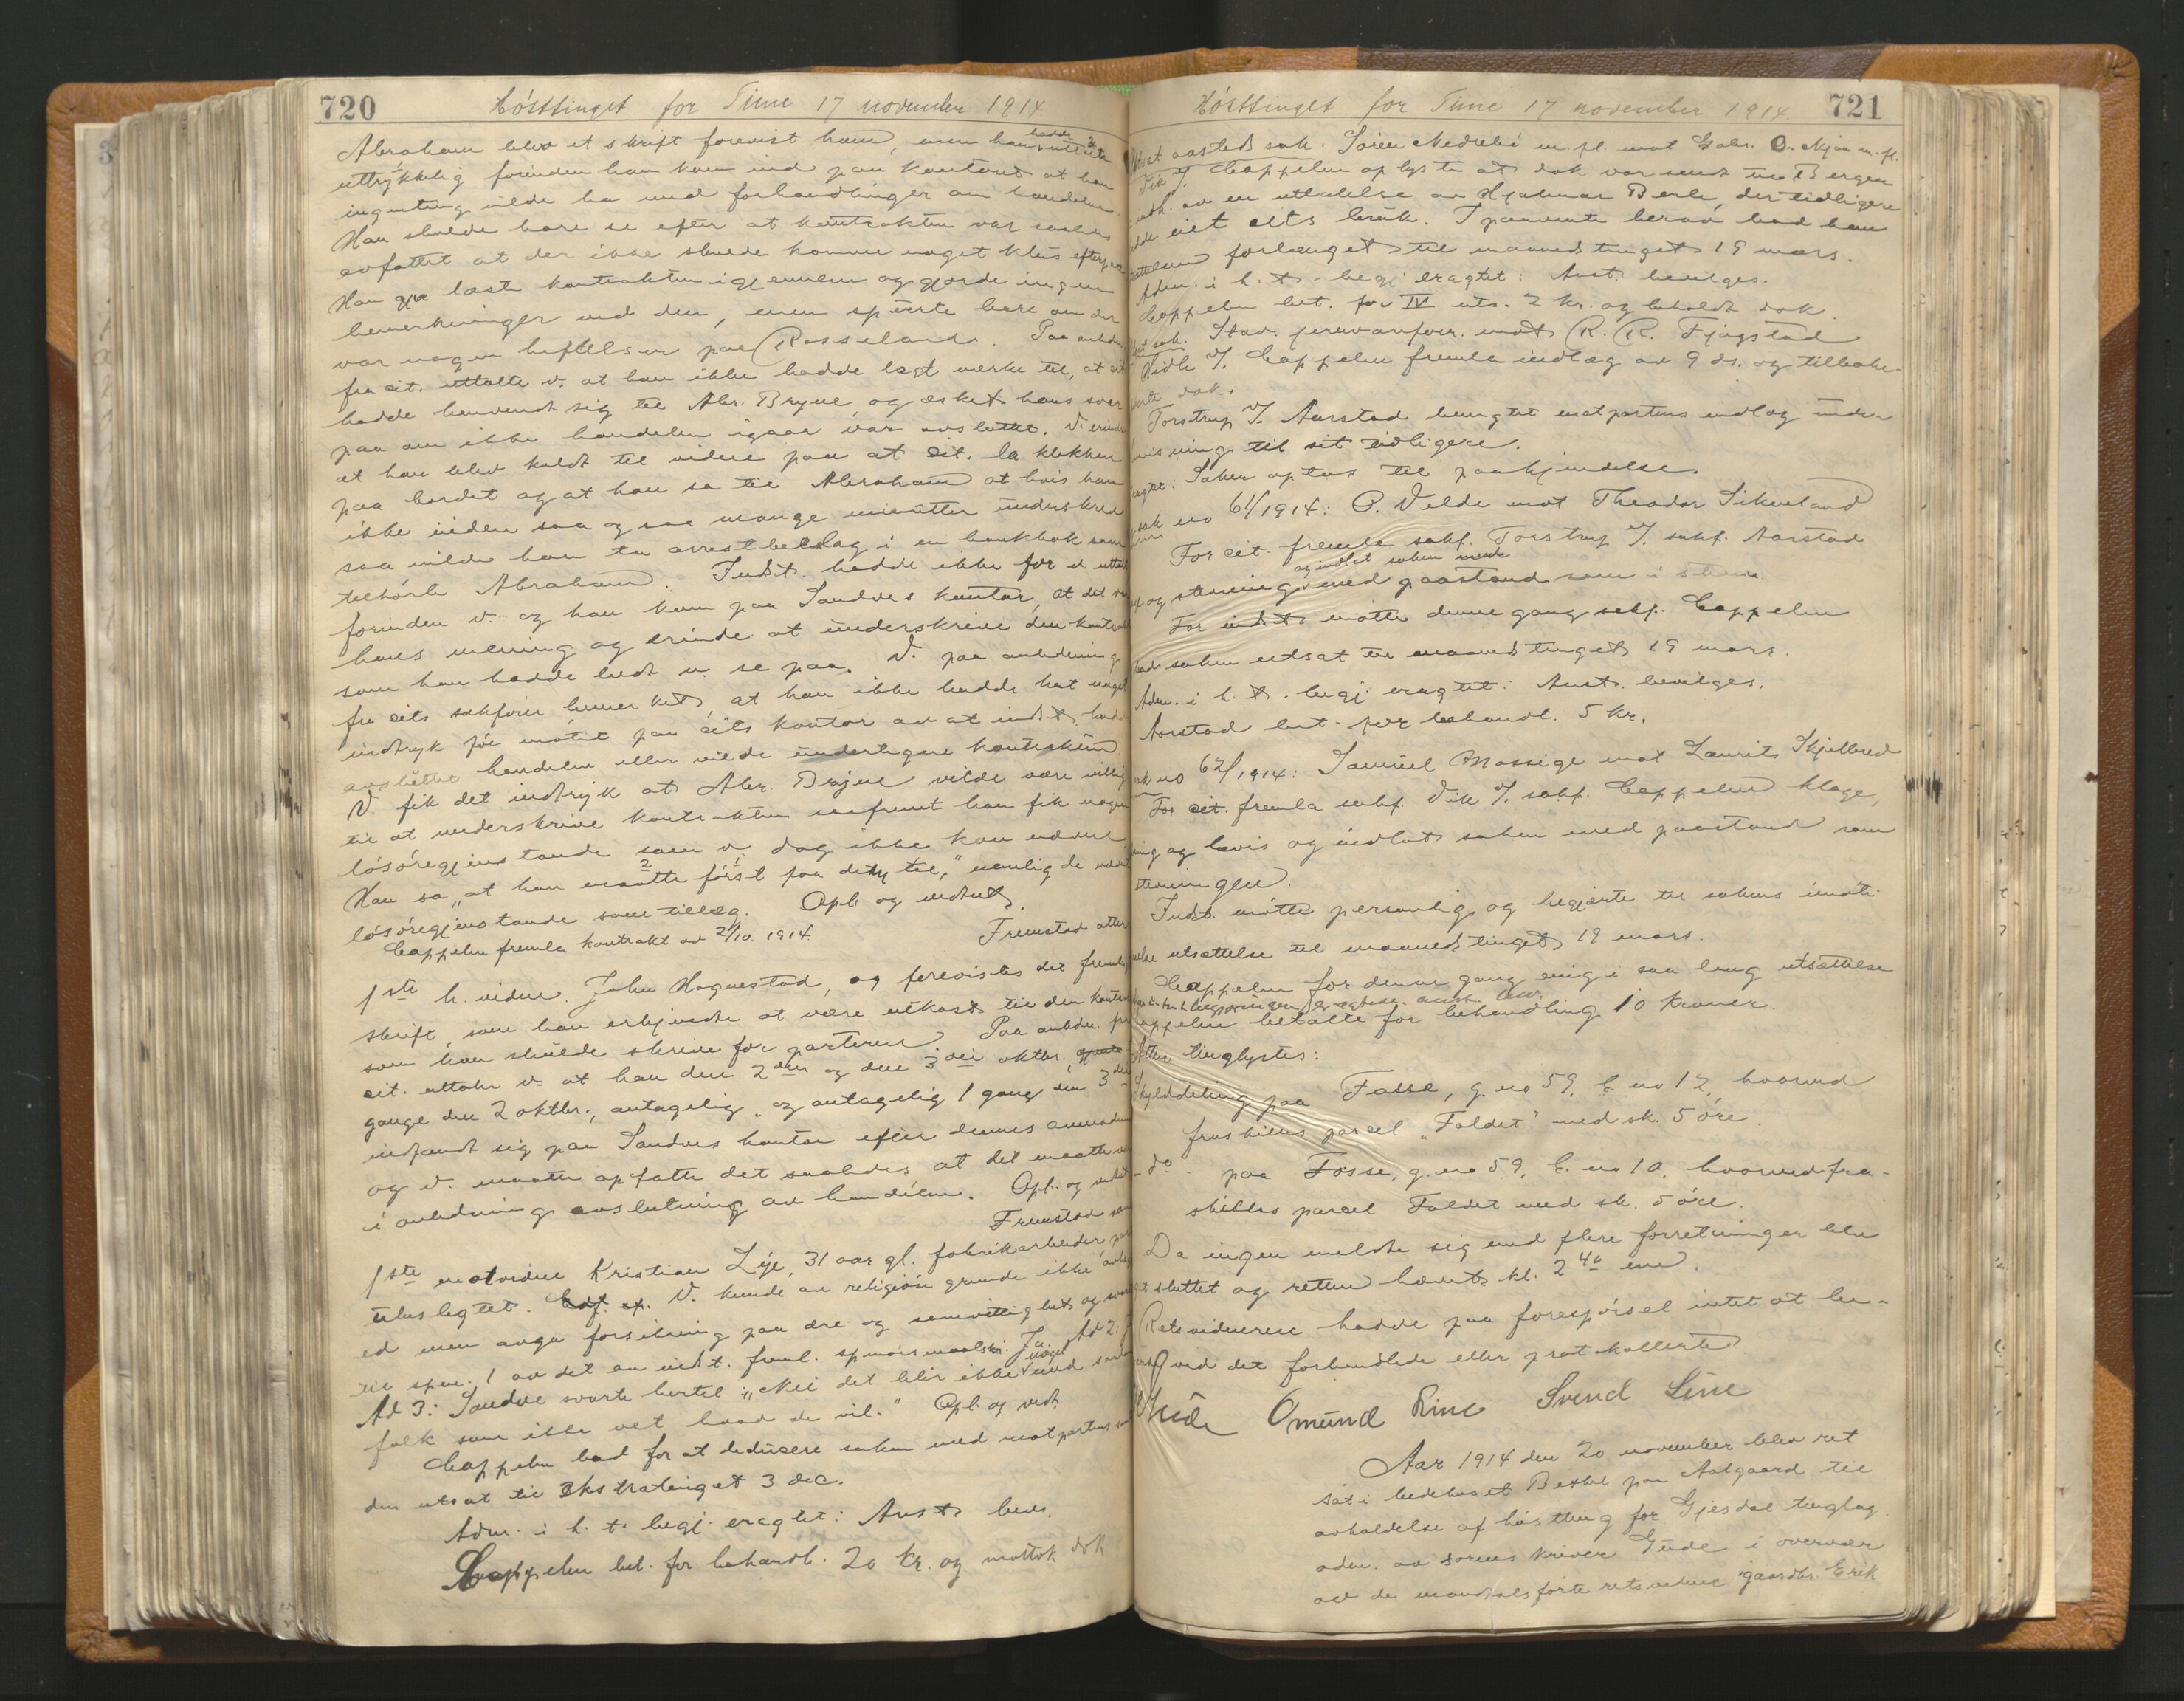 720
Hósttinget for Time 17 november 1914
Abraham blev et skrift forevist ham, men han hadde
uttrýkkelig forinden han kom ind paa kontoret at han
ingenting vilde ha med forhandlinger om handelen
Han skulde bare se efter at kontrakten var saaledes
avfattet at der ikke skulde komme noget klús efterpaa
Han læste kontrakten igjennem og gjorde ingen
bemerkninger ved den, men spurte bare om der
var nogen heftelser paa Rosseland. Paa anledn
fra cit. uttalte v. at han ikke hadde lagt merke til, at cit
hadde henvendt sig til Abr. Bryne og æsket hans svar
paa om ikke handelen igaar var avsluttet. V. erindr
at han blev kaldt til vidne paa at cit. la klokken
paa bordet og at han sa til Abraham at hvis han
ikke inden saa og saa mange minutter underskrev
saa vilde han ta arrestbeslag i en bankbok som
tilhórte Abraham. Indst. hadde ikke for v. uttalt
forinden v. og han kom paa Sandves kontor, at det var
hans mening og erinde at underskrive den kontrakt
som han hadde bedt v. se paa. V. paa anledning
fra cits sakfórer bemerket, at han ikke hadde hat noget
indtryk fór mótet paa cits kontor av at indst. hadde
avsluttet handelen eller vilde undertegne kontrakten
V. fik det indtryk at Abr. Brýne vilde være villig
til at underskrive kontrakten saafremt han fik nogen
lósóregjenstande som v. dog ikke kan nævne
Han sa „at han maatte fórst faa dety til," nemlig de
lósóregjenstande som tillæg. Opl. og vedtat.
Cappelen fremla kontrakt av 2/10. 1914. Fremstod atter
1ste h. vidne. John Hognestad, og forevistes det fremlagte
skrift, som han erkjendte at være utkast til den kontrakt
som han skulde skrive for parterne. Paa anledn. fra
cit. uttaler v. at han den 2den og den 3die oktbr.
gange den 2 oktbr., antagelig og antagelig 1 gang den 3die
indfandt sig paa Sandves kontor efter dennes anmodning
og v. maatte opfatte det saaledes at det maatte være
i anledning avslutning av handelen. Opl. og vedtat
Fremstod som
1ste motvidne Kristian Lýe, 31 aar gl. fabrikarbeider
ubeslegtet. V. kunde av religiósе grunde ikke avlægge
ed men avga forsikring paa ære og samvittighet og svarte
til spm. 1 av det av indst. freml. spórsmaalskr: Ja Ad 2:
Ad 3: Sandve svarte hertil: „Nei det blir ikke noget med
folk som ikke vet hvad de vil." Opl. og vedt.
Cappelen bad for at deducere saken med motpartens
den utsat til Ekstratinget 3 dec.
Adm. i h. t. begj. eragtet: Anst. bev.
Cappelen bet. for behandl. 20 kr. og mottok dok
Hósttinget for Time 17 november 1914. 721
Utsat aasteds sak. Sóren Nedrebó m. fl. mot Gabr. O. Mjaa m. fl.
Vik v/ Cappelen oplyste at dok var sendt til Bergen
indh. av en uttalelse av Hjalmar Berle, der tidligere
eiet cits brúk. I paavente herav bad han
forlænget til maanedstinget 19 mars.
Adm. i h. t. begj. eragtet: Anst. bevilges.
Cappelen bet. for IV uts. 2 kr. og beholdt dok.
sak. Stav. jernvareforr. mot R. R. Fjogstad
Vidh v/ Cappelen fremla indlæg av 9 ds. og tilbake-
dok.
Torstrup v/ Aarstad benegtet motpartens indlæg under
visning til sit tidligere.
Saken optas til paakjendelse.
sak no 61/1914: O. Velde mot Theodor Sikveland
For cit. fremla sakf. Torstrup v/ sakf. Aarstad
og stevning og indlot saken med paastand som i
For indst. mótte denne gang sakf. Cappelen
bad saken utsat til maanedstinget 19 mars.
Adm. i h. t. begj. eragtet: Anst. bevilges.
Aarstad bet. for behandl. 5 kr.
sak no 62/1914: Samúel Mossige mot Laurits Skjelbred
For cit. fremla sakf. Vik v/ sakf. Cappelen klage,
ning og bevis og indlot saken med paastand som
stevningen.
Indst. mótte personlig og begjærte til sakens imóte-
else utsættelse til maanedstinget 19 mars.
Cappelen for denne gang enig i saa lang utsættelse
Cappelen betalte for behandling 10 kroner.
Atter tinglystes:
Skylddeling paa Fosse, g. no 59, b. no 12, hvorved
fraskilles parcel „Foldet" med sk. 5 óre.
- do - paa Fosse, g. no 59, b. no 10, hvorved fra-
skilles parcel Foldet med sk. 5 óre.
Da ingen meldte sig med flere forretninger blev
sluttet og retten hævet kl. 2 40 em.
Retsvidnerne hadde paa forespórsel intet at be-
ved det forhandlede eller protokollerte.
Gude Omúnd Rime Svend Line
Aar 1914 den 20 november blev ret
sat i bedehuset Bethel paa Aalgaard til
avholdelse af hósting for Gjesdal tinglag
adm. av sorenskriver Gude i overvær
av de mandtalsfórte retsvidner gaardbr. Erik